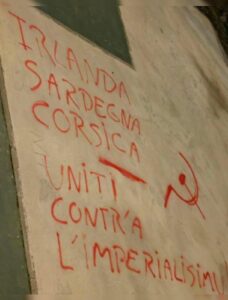 IRLANDA
SARDEGNA
CORSICA
UNITI
CONTR'A
L'IMPERIALISIMU